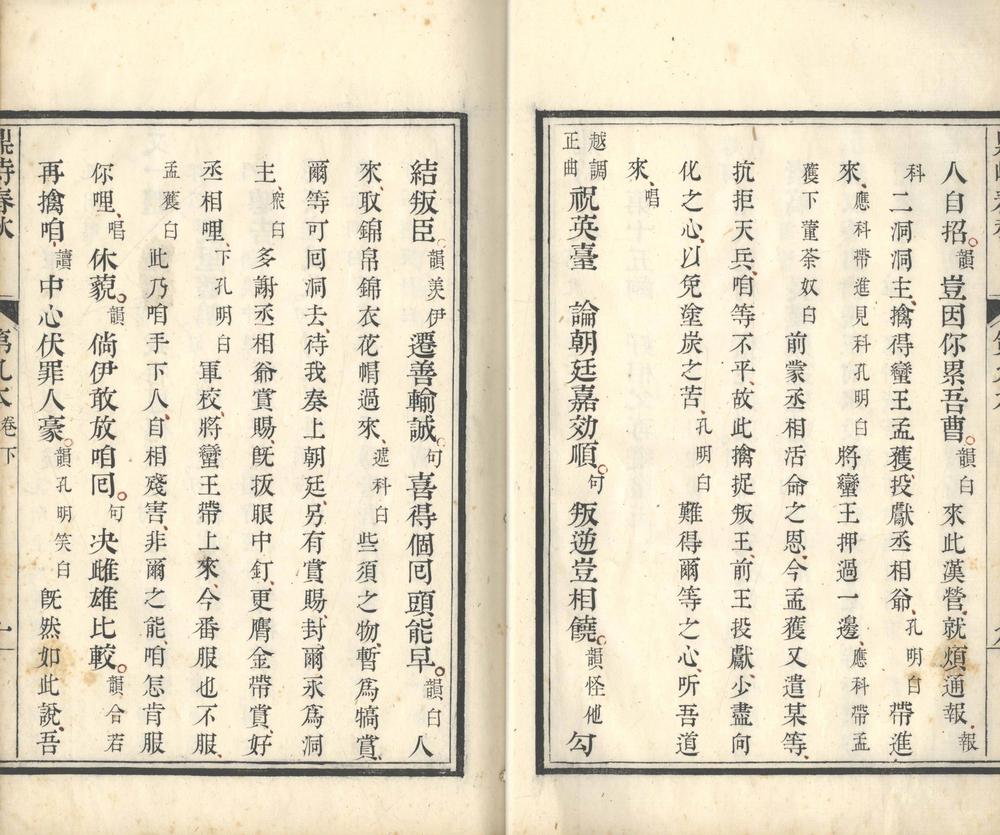 人自招韻豈因你累吾曹韻白來此漢營就煩通報報
科二洞洞主擒得蠻王孟獲投獻丞相爺孔明白帶進
來應科帶進見科孔明白將蠻王押過一邊應科帶孟
獲下董荼奴白前蒙丞相活命之恩今孟獲又遣某等
抗拒天兵咱等不平故此擒捉叛王前王投獻少盡向
化之心以免塗炭之苦孔明白難得爾等之心听吾道
來唱
越調正曲祝英臺 論朝廷嘉効順句叛逆豈相饒韻怪他勾
結叛臣韻羨伊遷善輸誠句喜得個囘頭能早韻白人
來取錦帛錦衣花帽過來遞科白些須之物暫爲犒賞
爾等可囘洞去待我奏上朝廷另有賞賜封爾永爲洞
主衆白多謝丞相爺賞賜旣拔眼中釘更膺金帶賞好
丞相哩下孔明白軍校將蠻王帶上來今番服也不服
孟獲白此乃咱手下人自相殘害非爾之能咱怎肯服
你哩唱休藐韻倘伊敢放咱囘句决雌雄比較韻合若
再擒咱讀中心伏罪人豪韻孔明笑白旣然如此說吾
鼎峙春秋 第九本卷下